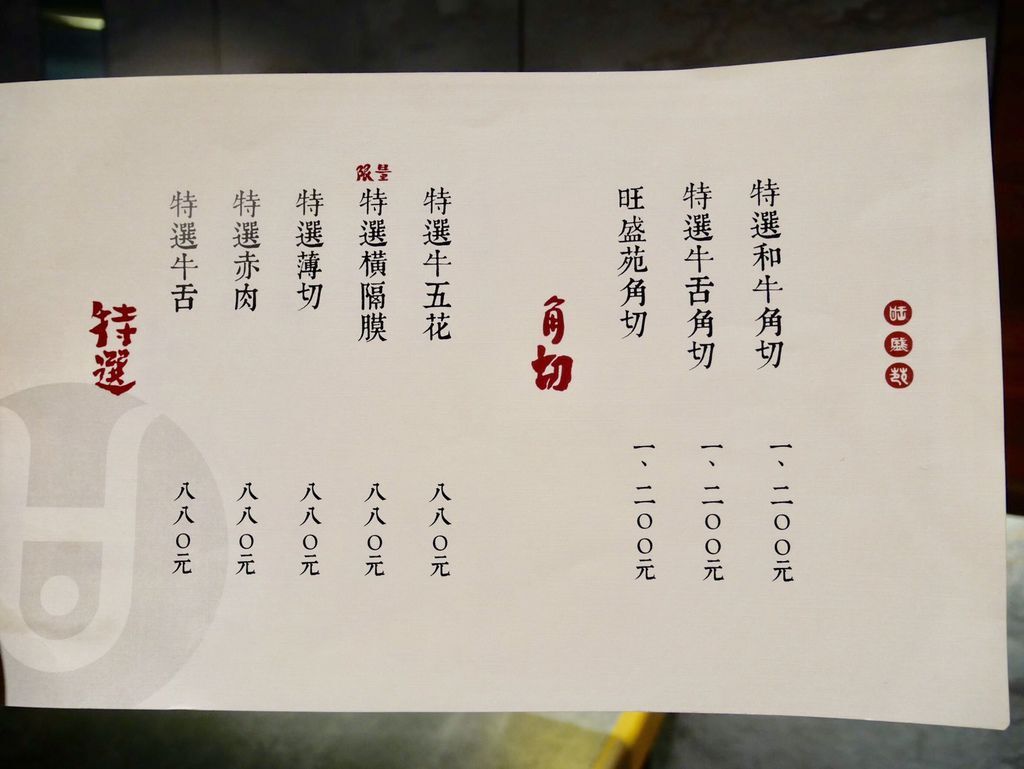 旺盛苑
特選和牛角切 一、二〇〇元
特選牛舌角切 一、二〇〇元
旺盛苑角切 一、二〇〇元
角切
特選牛五花 八八〇元
限量
特選橫隔膜 八八〇元
特選薄切 八八〇元
特選赤肉 八八〇元
特選牛舌 八八〇元
特選